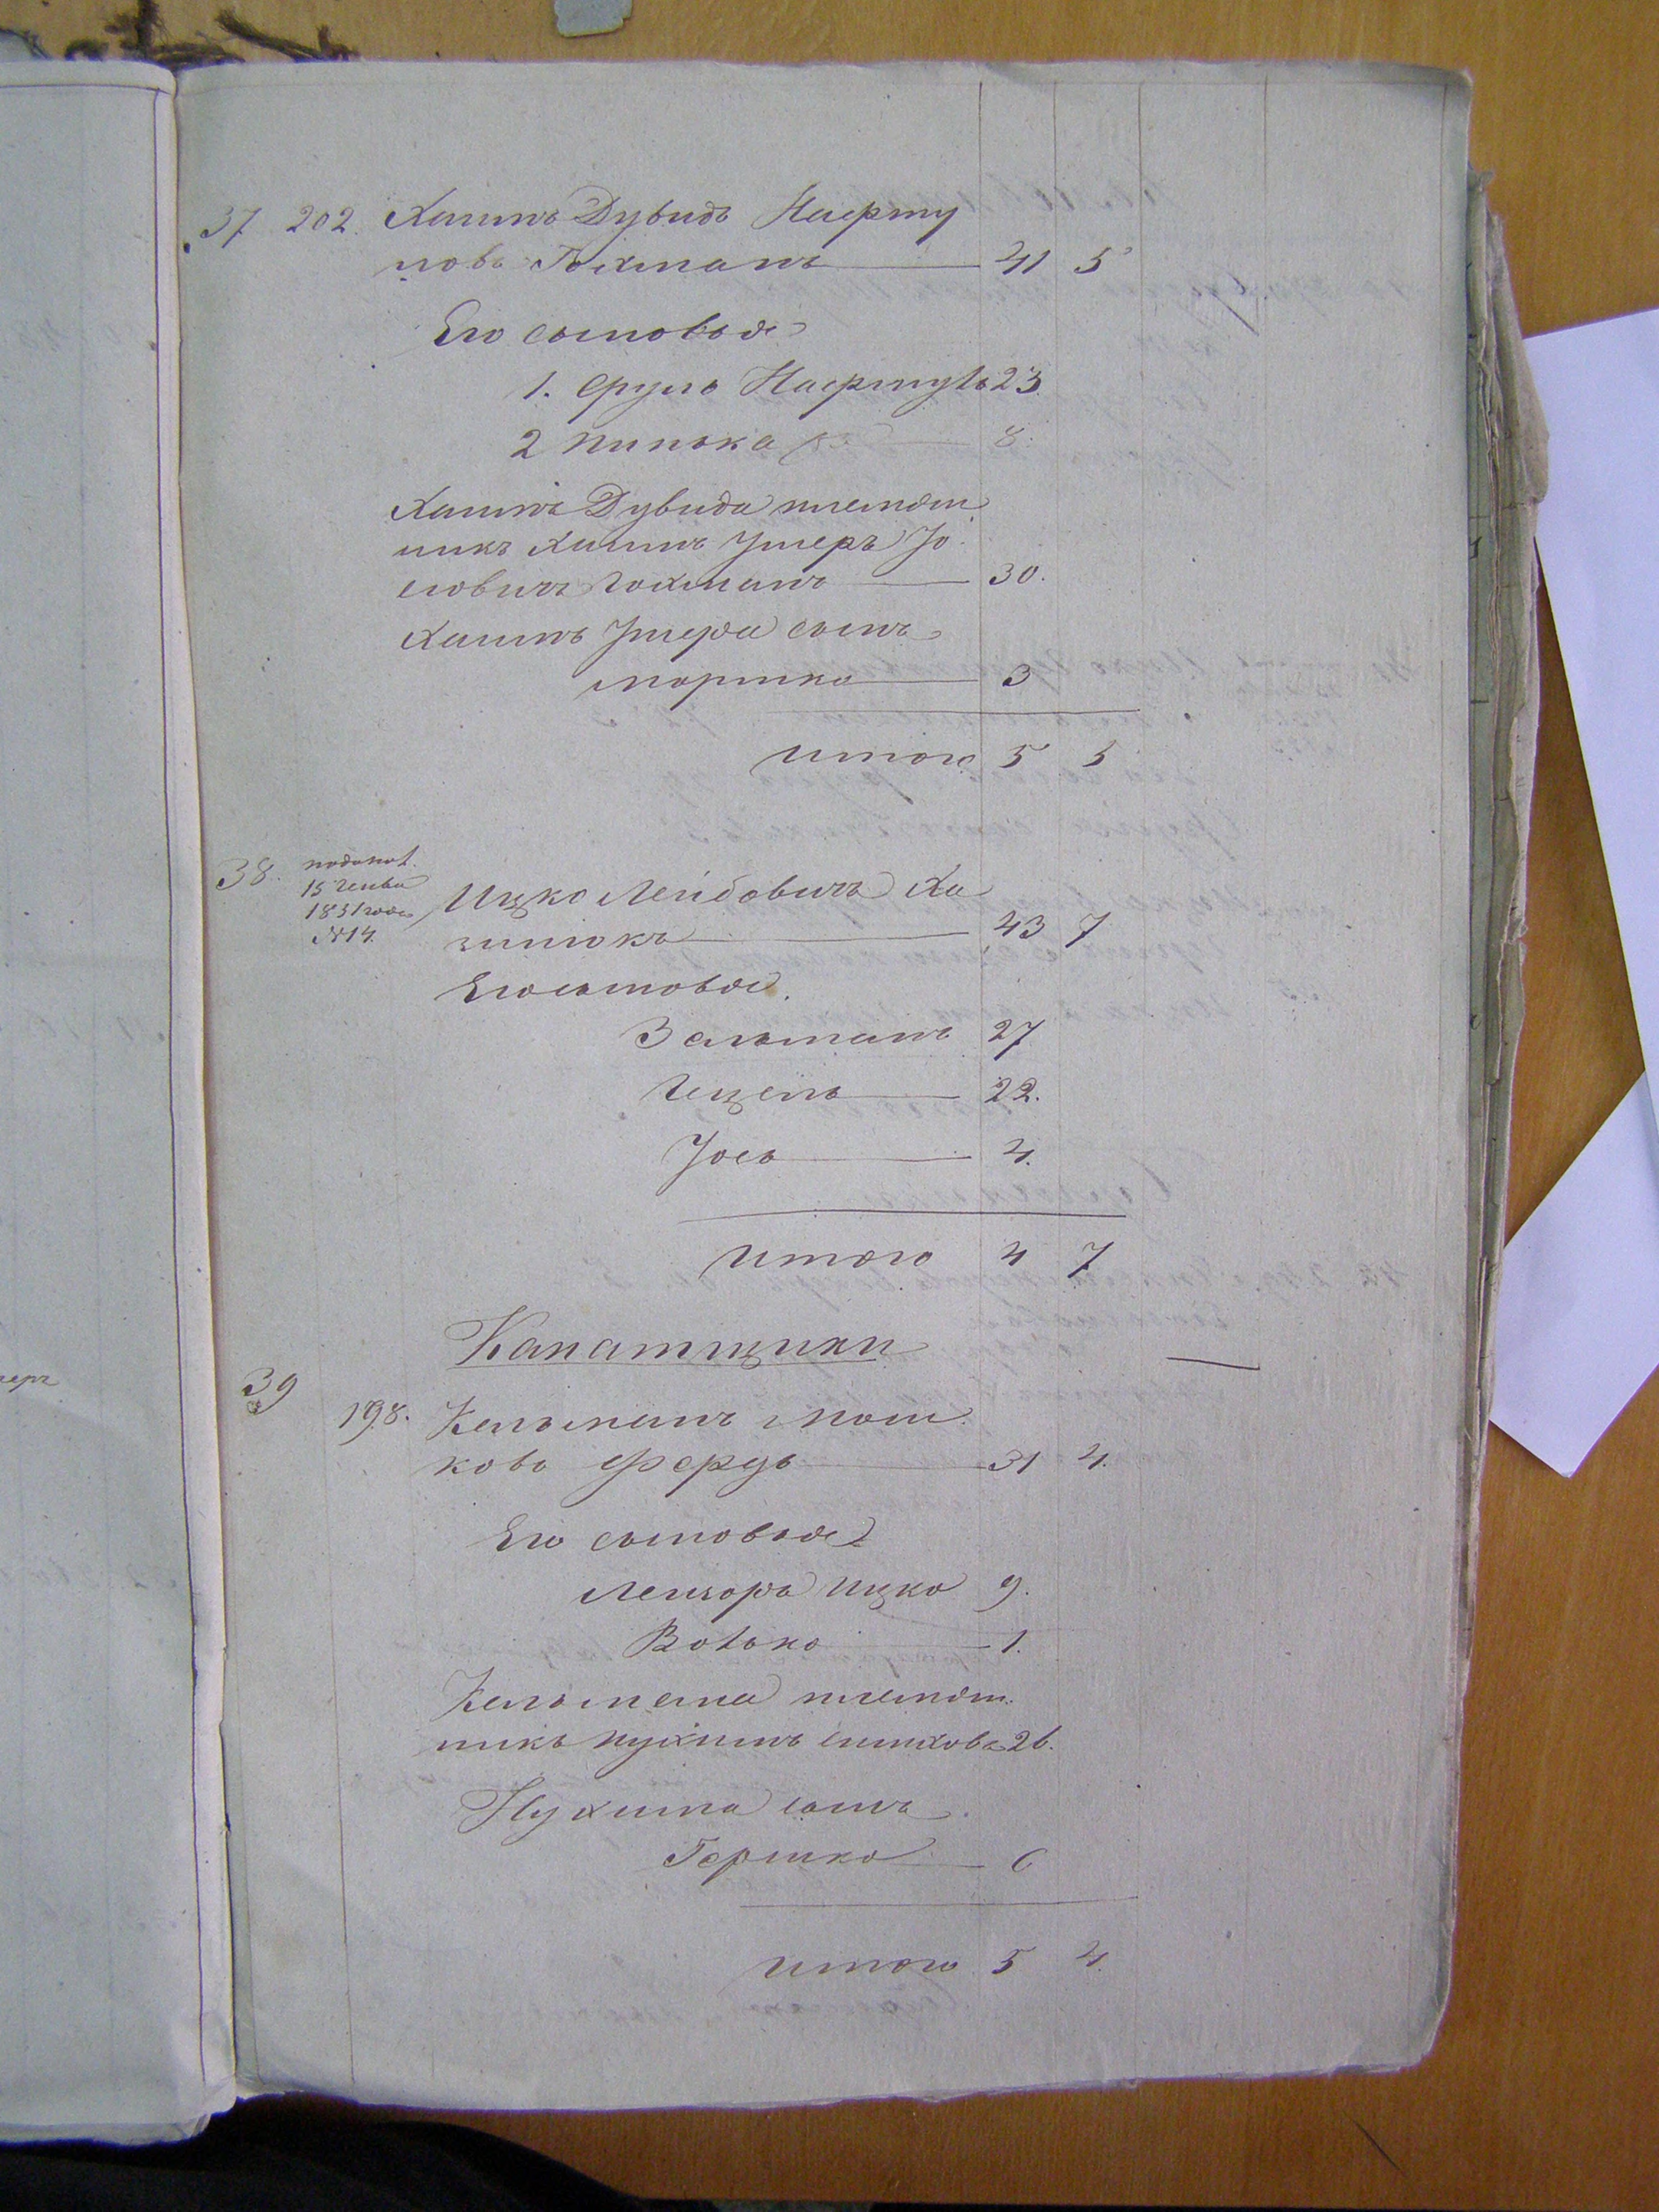 37 202. Хаимъ Дувидъ Нафту
ловъ Гохманъ 41 5
Его сыновья
1. Сруль Нафтулъ 23.
2 Пинька 8.
Хаимъ Дувида племян
никъ Хаимъ Ушеръ Іо
сіовичъ Гохманъ 30.
Хаимъ Ушера сынъ
Мошко 3
Итого 5 5
38. по докл.
15 генва
1851 года
№ 14.
Ицко Лейбовичъ Ха
зинюкъ 43 7
Его сыновья.
Зальманъ 27
Гецель 22.
Іось 4.
Итого 4 7
Канатщики
39 198. Кельманъ Мош
ковъ 31 4.
Его сыновья
Лейзоръ Ицко 9.
Волько 1.
Кельмана племян
никъ Нухимъ 26.
Нухима сынъ
Гершко 6
Итого 5 4.